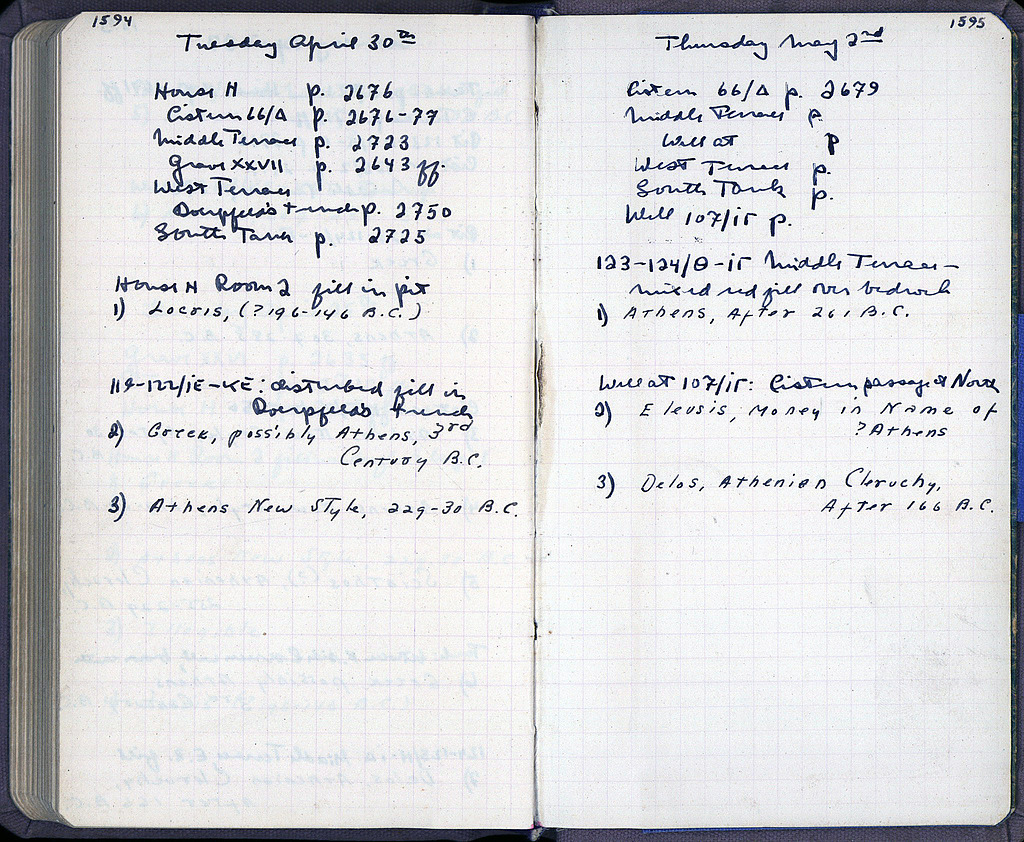 1594
Tuesday April 30th
House H p. 2676
Cistern 66/Δ p. 2676-77
Middle Terrace p. 2723
Grave XXVII p. 2643 ff.
West Terrace
Doerpfeld's trench p. 2750
South Tank p. 2725
House H Room 2 fill in pit
1) Locris, (?196-146 B.C.)
119-122/ΙΕ-ΚΕ: disturbed fill in
Doerpfeld's trench
2) Greek, possibly Athens, 3rd
Century B.C.
3) Athens New Style, 229-30 B.C.
1595
Thursday May 2nd
Cistern 66/Δ p. 2679
Middle Terrace p.
Well at p
West Terrace p.
South Tank p.
Well 107/ΙΓ p.
123-124/Θ-ΙΓ Middle Terrace -
mixed red fill over bedrock
1) Athens, After 261 B.C.
Well at 107/ΙΓ: Cistern passage at North
2) Eleusis, Money in Name of
? Athens
3) Delos, Athenian Cleruchy,
After 166 B.C.